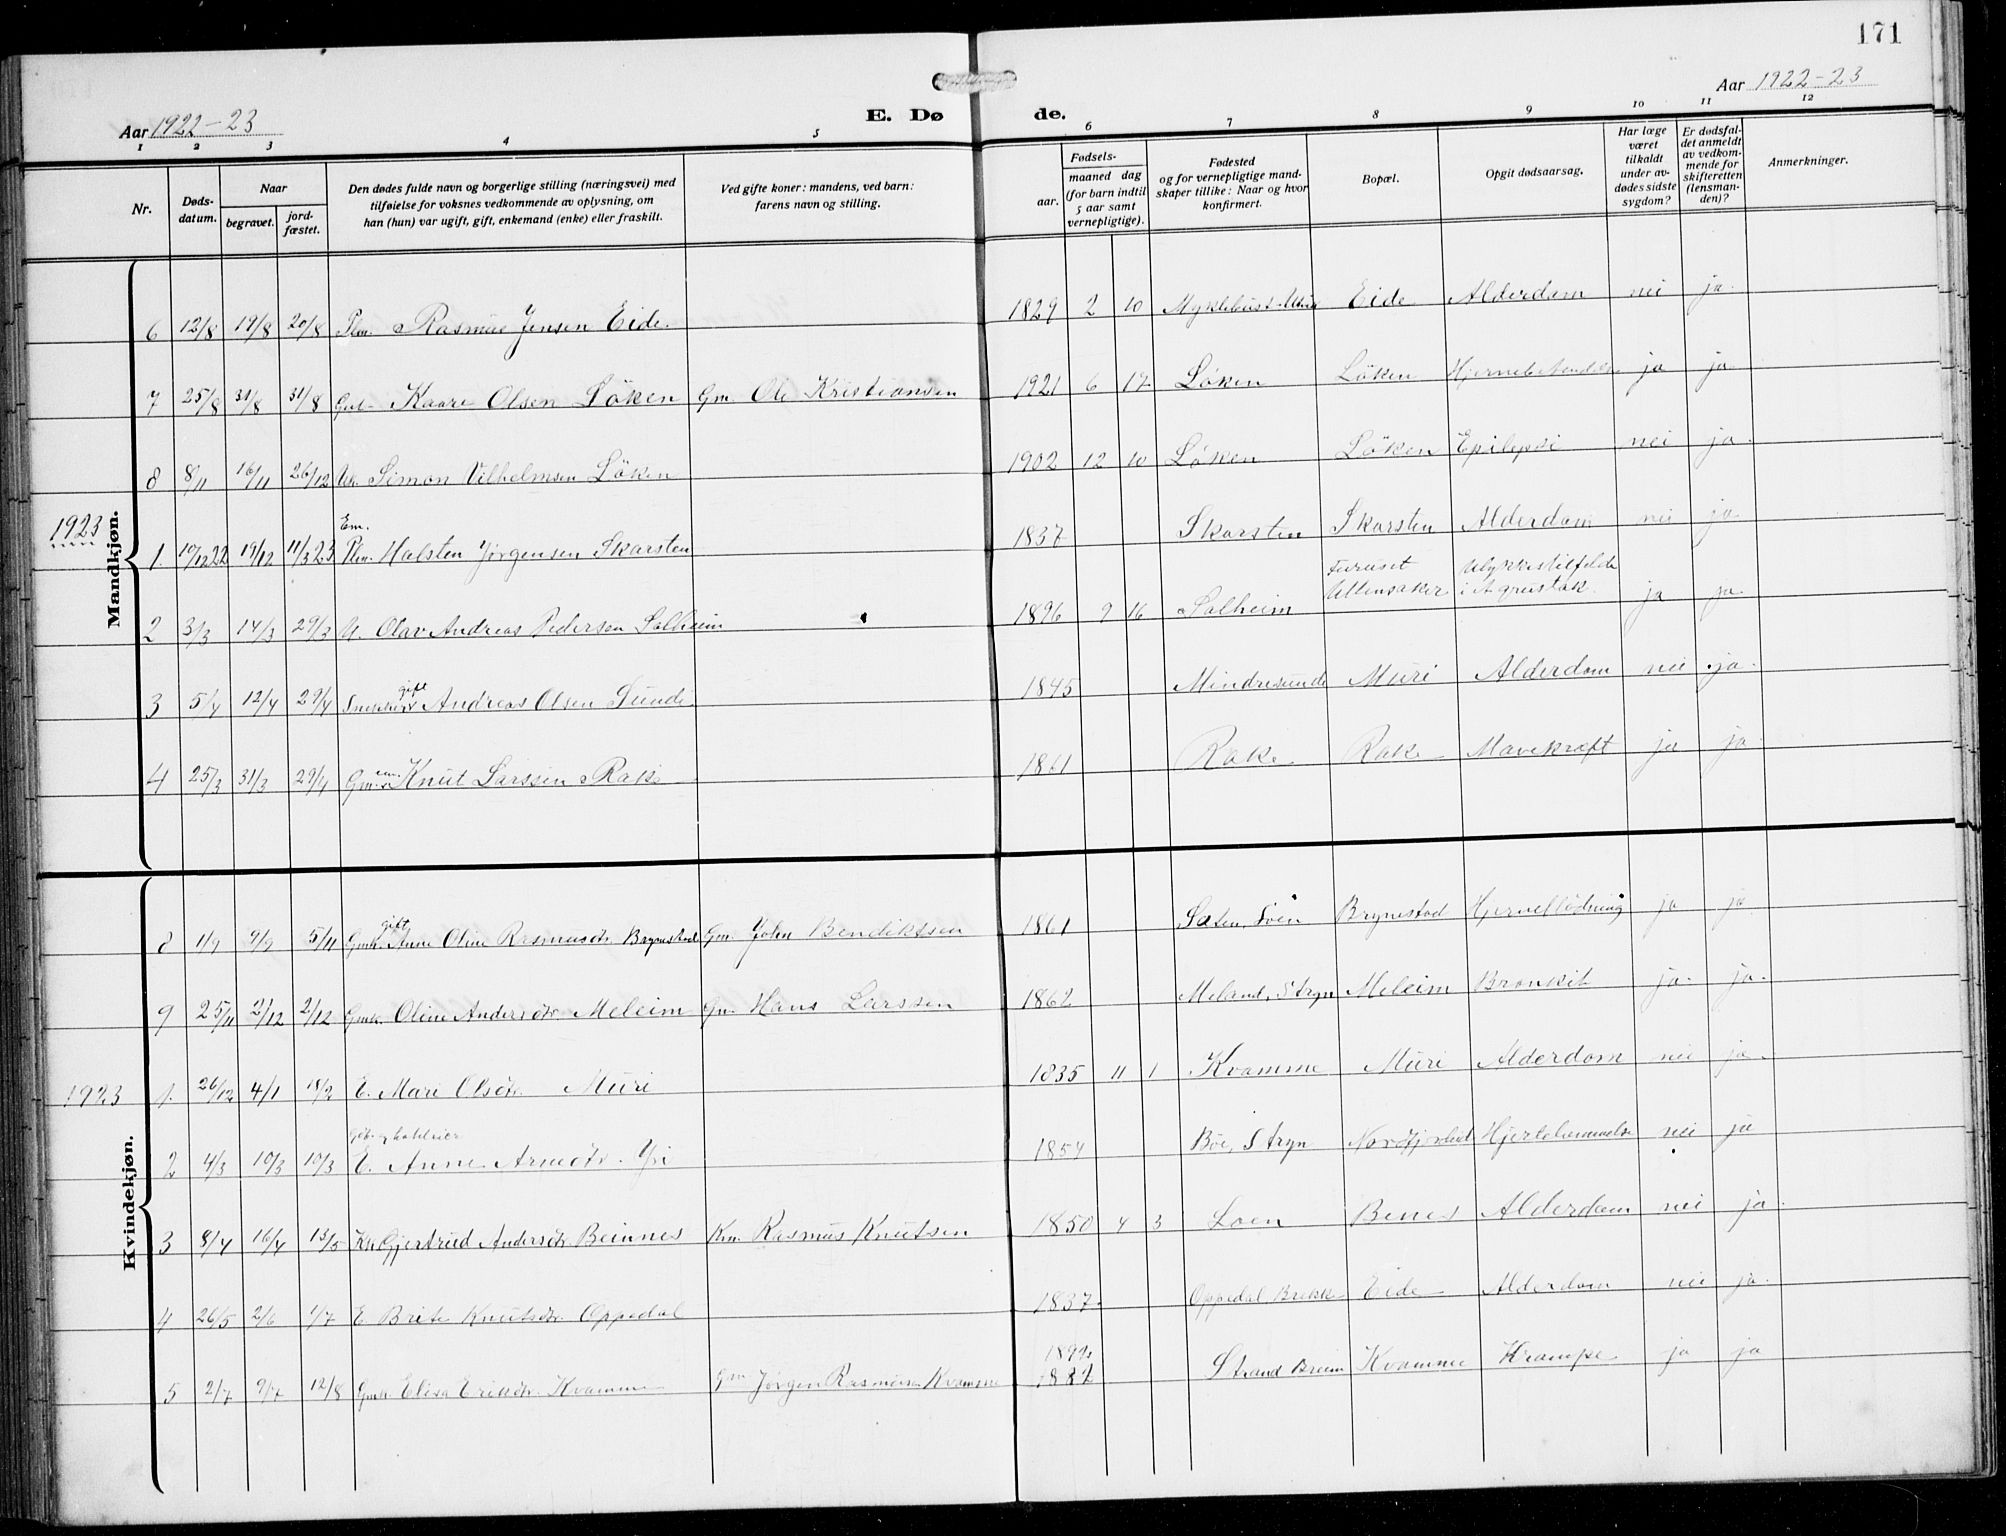 171
Aar 1922-23
E. Dø
de.
Aar 1922-23
1 2 3 4 5 6 7 8 9 10 11 12
Nr.
Døds-
datum.
Naar
begravet.
jord-
fæstet.
Den dødes fulde navn og borgerlige stilling (næringsvei) med
tilføielse for voksnes vedkommende av oplysning, om
han (hun) var ugift, gift, enkemand (enke) eller fraskilt.
Ved gifte koner: mandens, ved barn:
farens navn og stilling.
aar.
Fødsels-
maaned dag
(for barn indtil
5 aar samt
vernepligtige).
Fødested
og for vernepligtige mand-
skaper tillike: Naar og hvor
konfirmert.
Bopæl.
Opgit dødsaarsag.
Har læge
været
tilkaldt
under av-
dødes sidste
sygdom?
Er dødsfal-
det anmeldt
av vedkom-
mende for
skifteretten
(lensman-
den)?
Anmerkninger.
Mandkjøn.
6 12/8 19/8 20/8 Rasmus Jensen Eide. 1829 2 10 Myklebust Eide Alderdom nei ja.
7 25/8 31/8 31/8 Kaare Olsen Löken Gm. Ole Kristiansen 1921 6 17 Löken Löken ja ja.
8 8/11 16/11 26/12 Simon Vilhelmsen Löken 1902 12 10 Löken Löken Epilepsi nei ja.
1923
Em.
1. 10/12 22 19/12 11/3 23 Halsten Jørgensen Skarsten 1837 Skarsten Skarsten Alderdom nei ja
2 3/3 14/3 29/3 U. Olav Andreas Pedersen Solheim 1896 9 16 Solheim Furuset Ullensaker Ulykkestilfelde i A grustak. ja ja
gift
3 5/4 12/4 29/4 Snekker Andreas Olsen Sunde 1845 Mindresunde Muri Alderdom nei ja.
em.
4 25/3 31/3 29/4 Gm. Knut Larssen Rake 1861 Rake Rake Mavekræft ja ja
Kvindekjøn.
gift
8 1/9 9/9 5/11 Gmk. Anne Oline Rasmusdtr. Brynestad Gm. John Bendiktsen 1861 Sæten, Loen Brynestad Hjerneflødning ja ja
9 25/11 2/12 2/12 Gmk. Oline Andersdtr. Meleim Gm. Hans Larssen 1862 Meland, Stryn Meleim Bronkit ja. ja.
1923
1. 26/12 4/1 18/2 E. Mari Olsdtr. Muri 1835 11 1 Kvamme Muri Alderdom nei ja.
2 4/3 10/3 10/3 E. Anne Arnedtr. Yri 1854 Böe, Stryn Nordfjordeid Hjertelammelse nei ja
3 8/4 16/4 13/5 Gjertrud Andersdtr. Beinnes Km. Rasmus Knutsen 1850 4 3 Loen Benes Alderdom nei ja.
4 26/5 2/6 1/7 E Brite Knutsdtr. Oppedal 1837 Oppedal Brekke Eide Alderdom nei ja.
5 2/7 9/7 12/8 Gmk. Elisa Eriksdtr. Kvamme Gm Jørgen Rasmusen Kvamme Strand Breim Kvamme Krampe ja ja